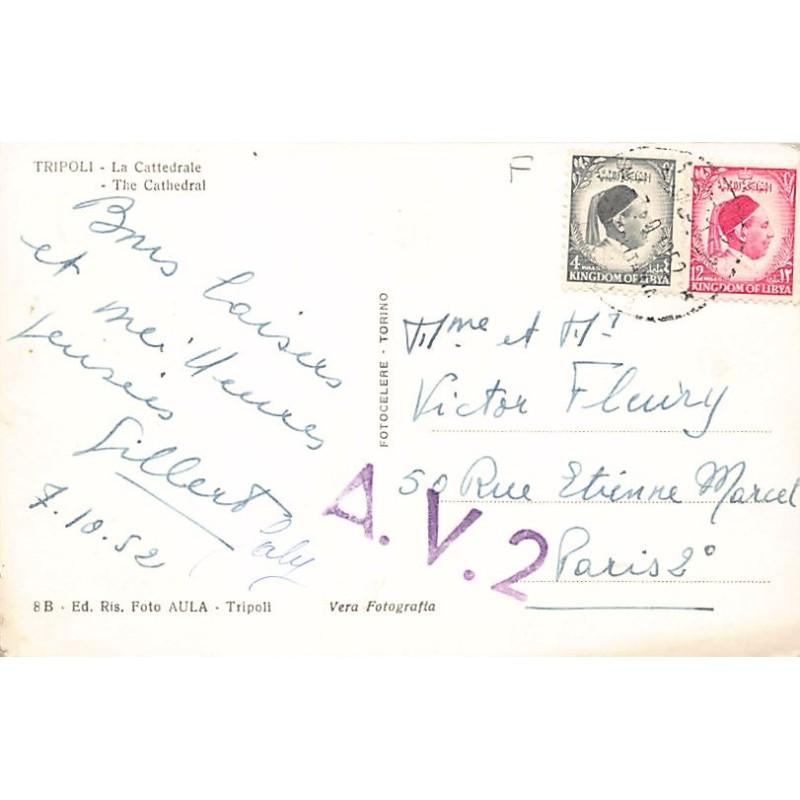 TRIPOLI - La Cattedrale
- The Cathedral
F
Bons baisers
et meilleures
pensées
Gilbert
7.10.52
8 B - Ed. Ris. Foto AULA - Tripoli
Vera Fotografia
FOTOCELERE - TORINO
4
MILLS
KINGDOM OF LIBYA
12
MILLS
١٢
KINGDOM OF LIBYA
Mme et Mr
Victor Fleury
50 Rue Etienne Marcel
Paris 2°
A.V.2